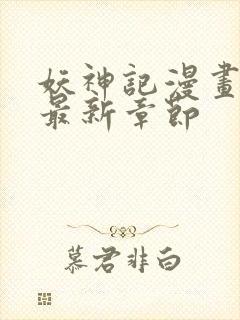 妖神記漫畫
最新章節
慕君非白